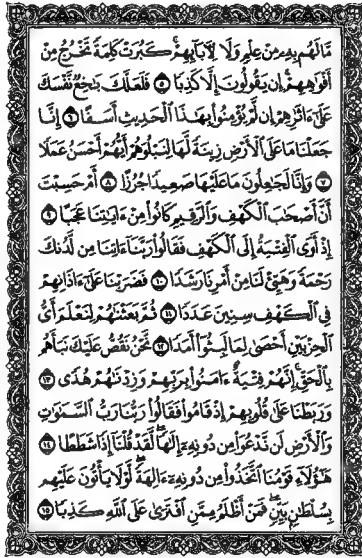 مَّا لَهُم بِهِۦ مِنْ عِلْمٍ وَلَا لِءَابَآئِهِمْ ۚ كَبُرَتْ كَلِمَةً تَخْرُجُ مِنْ
أَفْوَٰهِهِمْ ۚ إِن يَقُولُونَ إِلَّا كَذِبًا ۝٥ فَلَعَلَّكَ بَٰخِعٌ نَّفْسَكَ
عَلَىٰٓ ءَاثَٰرِهِمْ إِن لَّمْ يُؤْمِنُوا۟ بِهَٰذَا ٱلْحَدِيثِ أَسَفًا ۝٦ إِنَّا
جَعَلْنَا مَا عَلَى ٱلْأَرْضِ زِينَةً لَّهَا لِنَبْلُوَهُمْ أَيُّهُمْ أَحْسَنُ عَمَلًا
۝٧ وَإِنَّا لَجَٰعِلُونَ مَا عَلَيْهَا صَعِيدًا جُرُزًا ۝٨ أَمْ حَسِبْتَ
أَنَّ أَصْحَٰبَ ٱلْكَهْفِ وَٱلرَّقِيمِ كَانُوا۟ مِنْ ءَايَٰتِنَا عَجَبًا ۝٩
إِذْ أَوَى ٱلْفِتْيَةُ إِلَى ٱلْكَهْفِ فَقَالُوا۟ رَبَّنَآ ءَاتِنَا مِن لَّدُنكَ
رَحْمَةً وَهَيِّئْ لَنَا مِنْ أَمْرِنَا رَشَدًا ۝١٠ فَضَرَبْنَا عَلَىٰٓ ءَاذَانِهِمْ
فِى ٱلْكَهْفِ سِنِينَ عَدَدًا ۝١١ ثُمَّ بَعَثْنَٰهُمْ لِنَعْلَمَ أَىُّ
ٱلْحِزْبَيْنِ أَحْصَىٰ لِمَا لَبِثُوٓا۟ أَمَدًا ۝١٢ نَّحْنُ نَقُصُّ عَلَيْكَ نَبَأَهُم
بِٱلْحَقِّ ۚ إِنَّهُمْ فِتْيَةٌ ءَامَنُوا۟ بِرَبِّهِمْ وَزِدْنَٰهُمْ هُدًى ۝١٣
وَرَبَطْنَا عَلَىٰ قُلُوبِهِمْ إِذْ قَامُوا۟ فَقَالُوا۟ رَبُّنَا رَبُّ ٱلسَّمَٰوَٰتِ
وَٱلْأَرْضِ لَن نَّدْعُوَا۟ مِن دُونِهِۦٓ إِلَٰهًا ۖ لَّقَدْ قُلْنَآ إِذًا شَطَطًا ۝١٤
هَٰٓؤُلَآءِ قَوْمُنَا ٱتَّخَذُوا۟ مِن دُونِهِۦٓ ءَالِهَةً ۖ لَّوْلَا يَأْتُونَ عَلَيْهِم
بِسُلْطَٰنٍۭ بَيِّنٍ ۖ فَمَنْ أَظْلَمُ مِمَّنِ ٱفْتَرَىٰ عَلَى ٱللَّهِ كَذِبًا ۝١٥